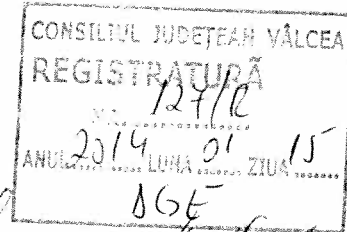 CONSILIUL JUDEŢEAN VÂLCEA
REGISTRATURĂ
NR. 127/R
ANUL 2014 LUNA 01 ZIUA 15
DGE